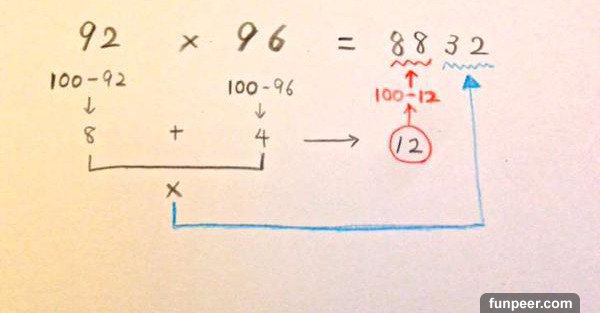 92 × 96 = 8832
100-92
100-96
100-12
8 + 4
12
×
funpeer.com